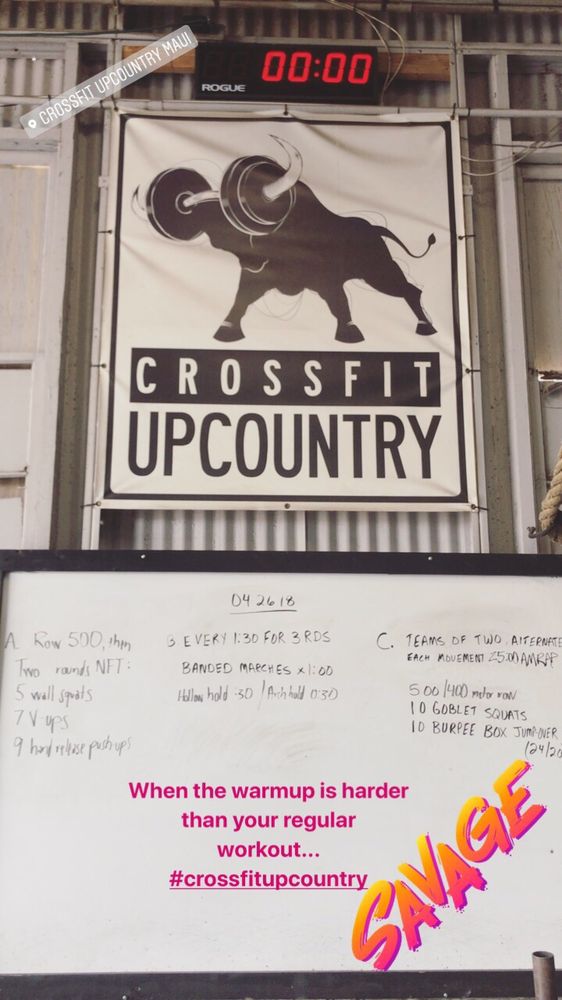 CROSSFIT UPCOUNTRY MAUI
00:00
ROGUE
CROSSFIT
UPCOUNTRY
04 26 18
A. Row 500, then
Two rounds NFT:
5 wall squats
7 V-ups
9 hand release push ups
B. EVERY 1:30 FOR 3 RDS
BANDED MARCHES x 1:00
Hollow hold :30 / Arch hold 0:30
C. TEAMS OF TWO, ALTERNATE
EACH MOVEMENT 25:00 AMRAP
500/400 meter row
10 GOBLET SQUATS
10 BURPEE BOX JUMP-OVER
(24/20
When the warmup is harder
than your regular
workout...
#crossfitupcountry
SAVAGE